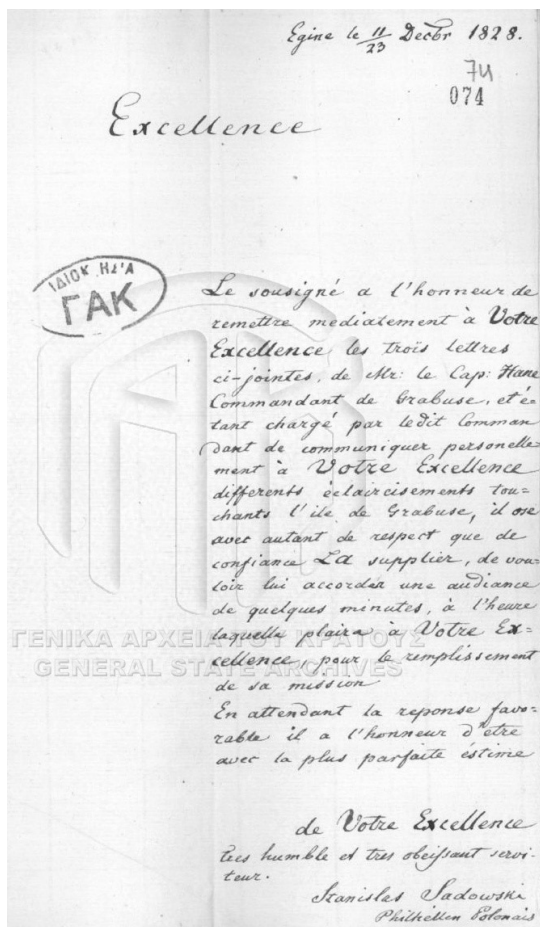 Egine le 11/23 Decbr 1828.
74
074
Excellence
ΙΔΙΟΚ. Η2'Α
ΓΑΚ
Le sousigné a l'honneur de
remettre mediatement à Votre
Excellence, les trois lettres
ci-jointes, de Mr: le Cap: Hane
Commandant de Grabuse, et é=
tant chargé par ledit Comman
dant de communiquer personelle=
ment à Votre Excellence
differents éclaircisements tou=
chants l'ile de Grabuse, il ose
avec autant de respect que de
confiance La supplier, de vou=
loir lui accorder une audiance
de quelques minutes, à l'heure
laquelle plaira à Votre Ex=
cellence, pour le remplissement
de sa mission
En attendant la reponse favo=
rable il a l'honneur d'etre
avec la plus parfaite éstime
de Votre Excellence
tres humble et tres obeissant servi-
teur.
Stanislas Sadowski
Philhellen Polonais
ΓΕΝΙΚΑ ΑΡΧΕΙΑ ΤΟΥ ΚΡΑΤΟΥΣ
GENERAL STATE ARCHIVES